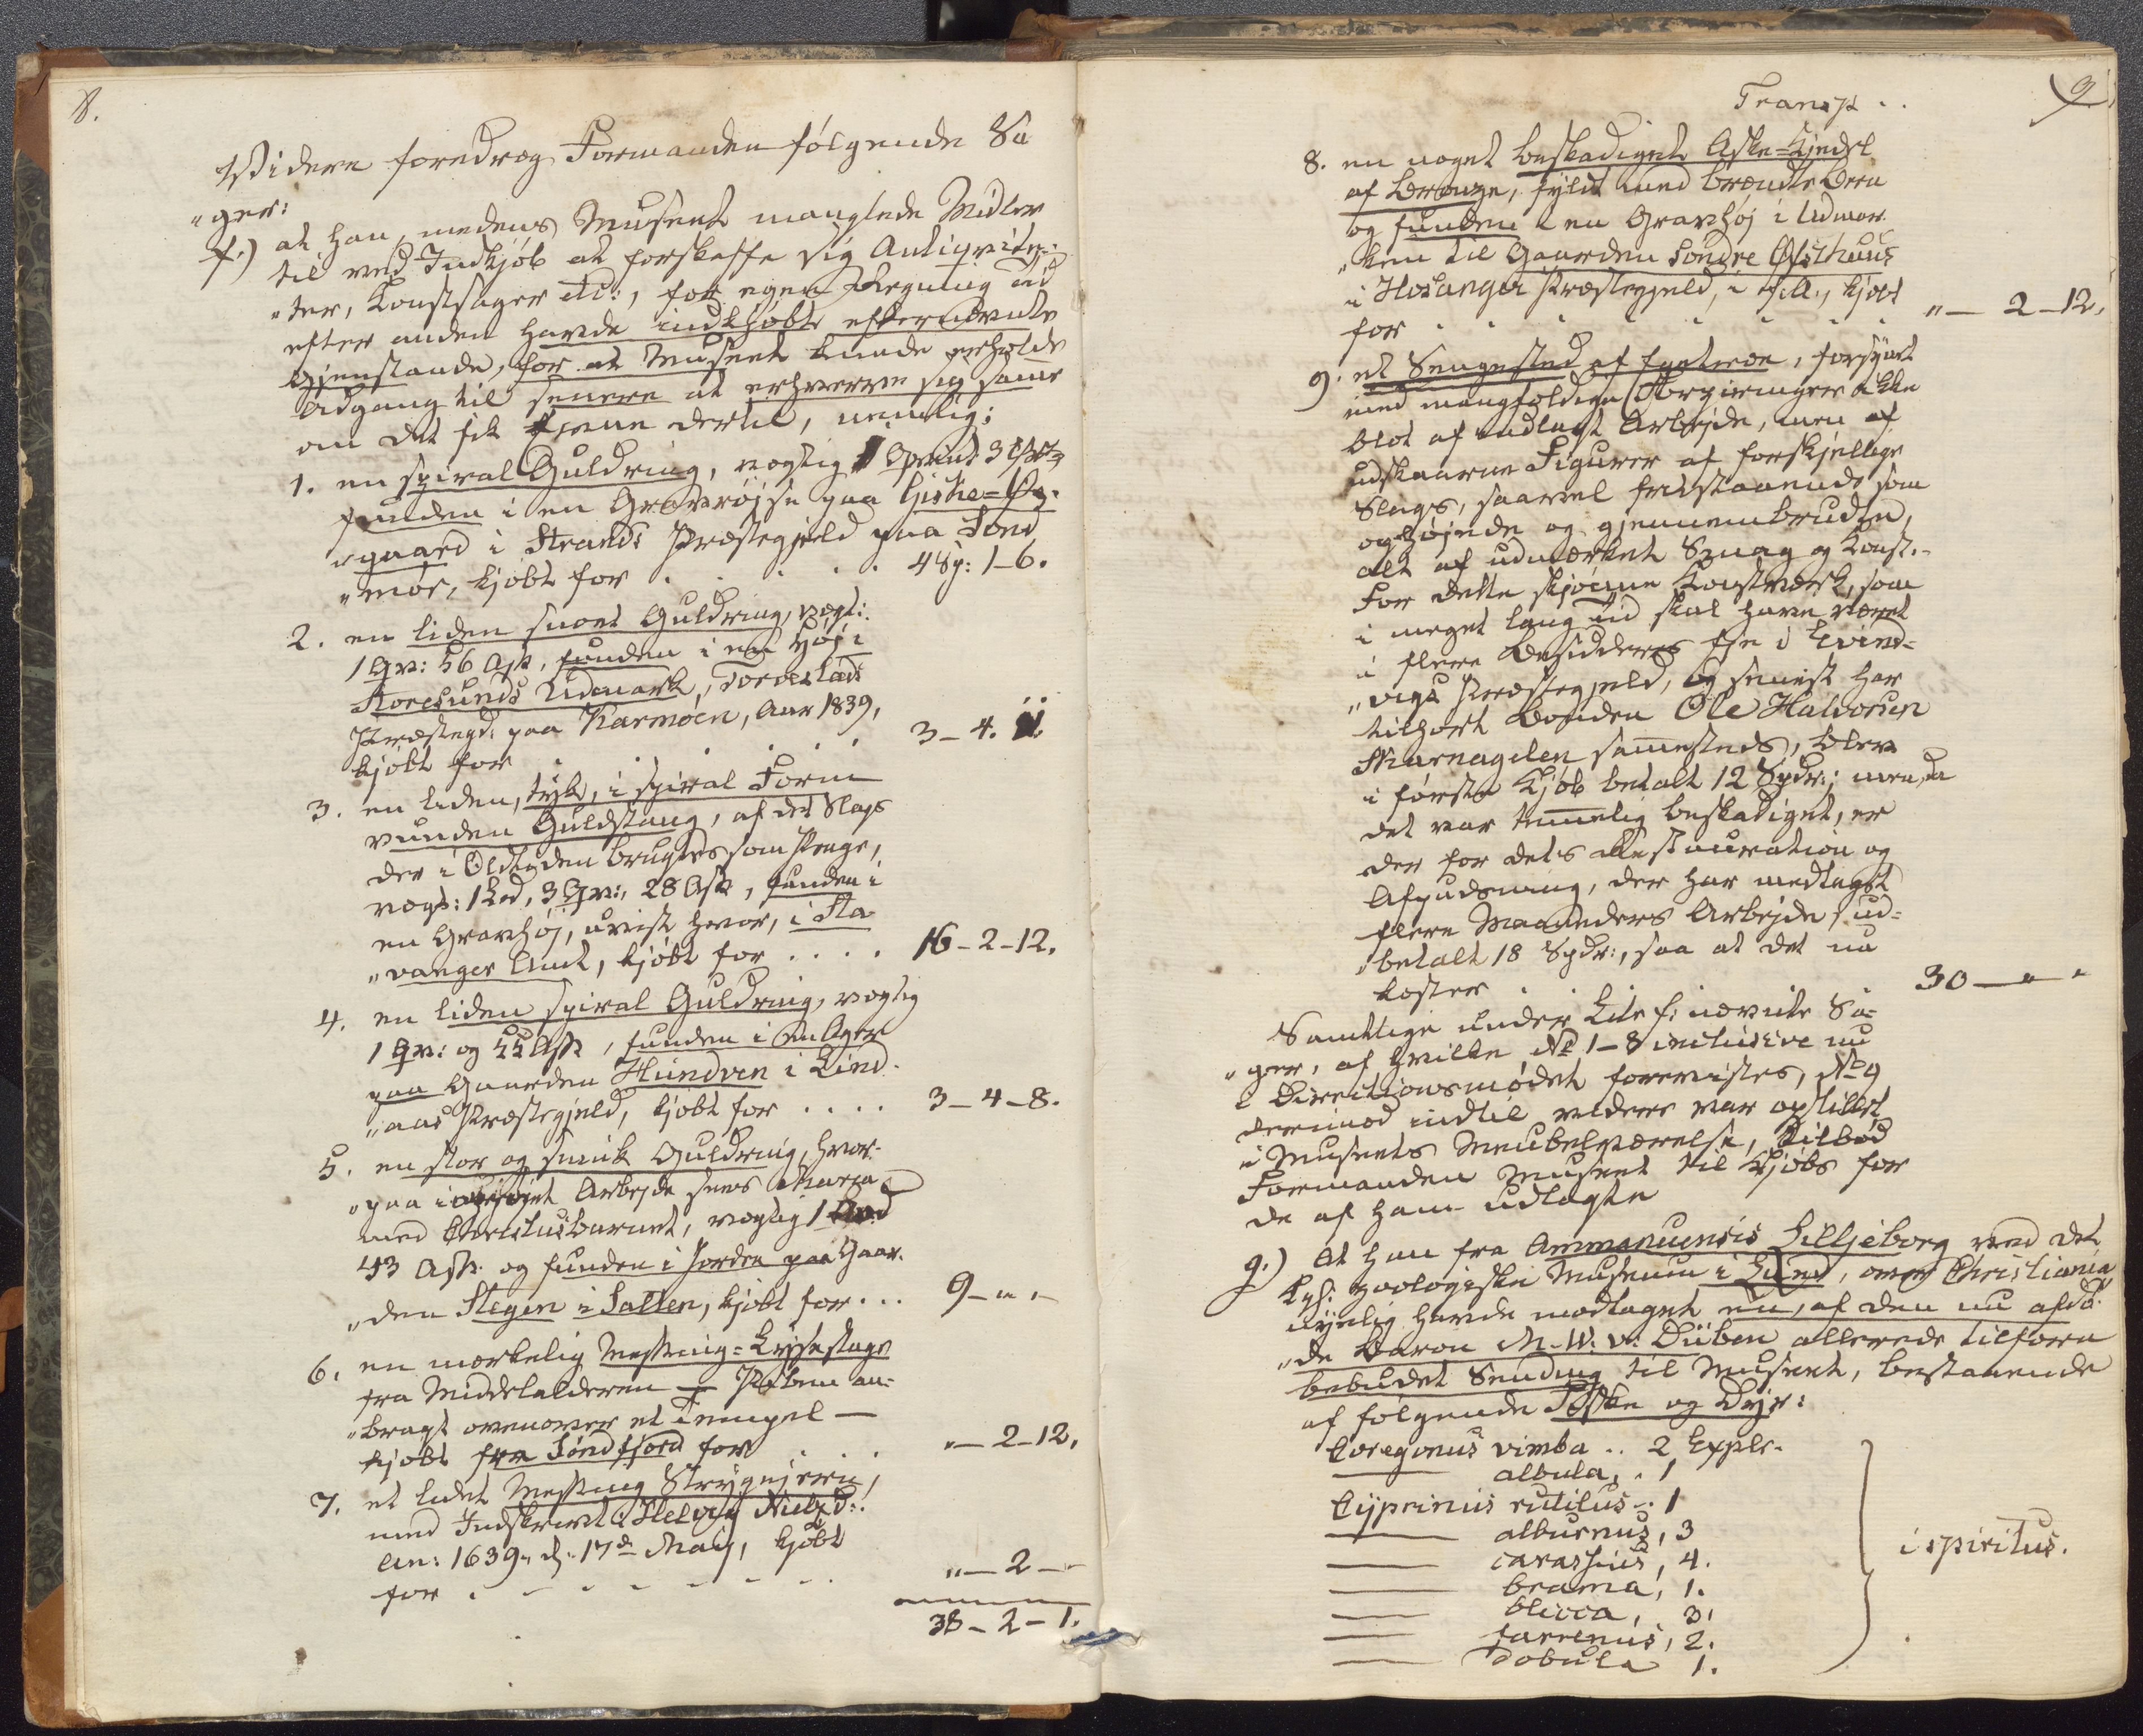 8.
Videre foredrog Formanden følgende Sa
„ger:
f.) at han, medens Museet manglede Midler
til ved Indkjøb at forskaffe sig Antiqvite-
„ter, Konstsager etc:, for egen Regning Tid
efter anden havde indkjøbt efternævnte
Gjenstande, for at Museet kunde erholde
Adgang til senere at erhverve sig samme
om det fik Evne dertil, nemlig:
1. en spiral Guldring, vægtig
funden i en Gravrøjse paa Giske=Øg.
„gaard i Strands Præstegjeld paa Sønd
„mør, kjøbt for . . . . . 4 Sp: 1-6.
2. en liden snoet Guldring, vægt:
1 Qv: 56 Ass, funden i en Høj i
Storesunds Udmark, Torvestads
Præstegd: paa Karmøen, Aar 1839,
kjøbt for . . . . . 3-4. „.
3. en liden, tyk, i spiral Form
vunden Guldstang, af det Slags
der i Oldtiden brugtes som Penge,
vægt: 1 Lod, 3 Qv:, 28 Ass, funden i
en Gravhøj, uvist hvor, i Sta
„vanger Amt, kjøbt for . . . . 16-2-12.
4. en liden spiral Guldring, vægtig
1 Qv: og 55 Ass, funden i en Ager
paa Gaarden Hundven i Lind-
„aas Præstegjeld, kjøbt for . . . . 3-4-8.
5. en stor og smuk Guldring, hvor-
„paa i ophøjet Arbejde sees Maria
med Christusbarnet, vægtig 1 Lod
43 Ass. og funden i Jorden paa Gaar-
„den Stegen i Salten, kjøbt for . . . 9-„-
6. en mærkelig Messing=Lysestage
fra Middelalderen – Piben an-
„bragt ovenover et Tempel –
kjøbt fra Søndfjord for . . . „-2-12.
7. et lidet Messing Strygejern,
med Indskrivt: Helvig Nielsd:
An: 1639, d: 17de Maij, kjøbt
for . . . . . . . „-2-„
38-2-1.
9
Transp . .
8. en noget beskadiget Aske=Kjedel
af Bronze, fyldt med brændte Been
og funden i en Gravhøj i Udmar-
„ken til Gaarden Søndre Ofsthuus
i Hosanger Præstegjeld, kjøbt
for . . . . . . . . „-2-12.
9. et Sengested af Egetræe, forsynet
med mangfoldige Forziringer ikke
blot af indlagt Arbejde, men af
udskaarne Figurer af forskjellige
Slags, saavel fritstaaende som
ophøjede og gjennembrudte,
alt af udmærket Smag og Konst.-
For dette skjønne Konstværk, som
i meget lang Tid skal have været
i flere Besidderes Eje i Evind-
„vigs Præstegjeld, og senest har
tilhørt Bonden Ole Halvorsen
Skarnagelen sammesteds, blev
i første Kjøb betalt 12 Spdr:; men da
det var temmelig beskadiget, er
der for dets Restauration og
Afpudsning, der har medtaget
flere Maaneders Arbejde, ud-
„betalt 18 Spdr:, saa at det nu
koster . . . . 30-„-„
Samtlige under Lit: f: nævnte Sa-
„ger, af hvilke No 1-8 inclusive nu
i Directionsmødet forevistes, No 9
derimod indtil videre var opstillet
i Museets Meubelværelse, tilbød
Formanden Museet til Kjøbs for
de af ham udlagte
g.) At han fra Ammanuensis Lilljeborg ved det
Kgl: zoologiske Museum i Lund, over Christiania
nylig havde modtaget en, af den nu afdø-
„de Baron M. W. v: Düben allerede tilforn
bebudet Sending til Museet, bestaaende
af følgende Fiske og Dyr:
Coregonus vimba . . 2 Explr.
—— albula, . 1
Cyprinus rutilus . . 1
—— alburnus, 3
—— carassius, 4.
—— brama, 1.
—— blicca, 3.
—— farrenus, 2.
—— dobula 1.
i spiritus.